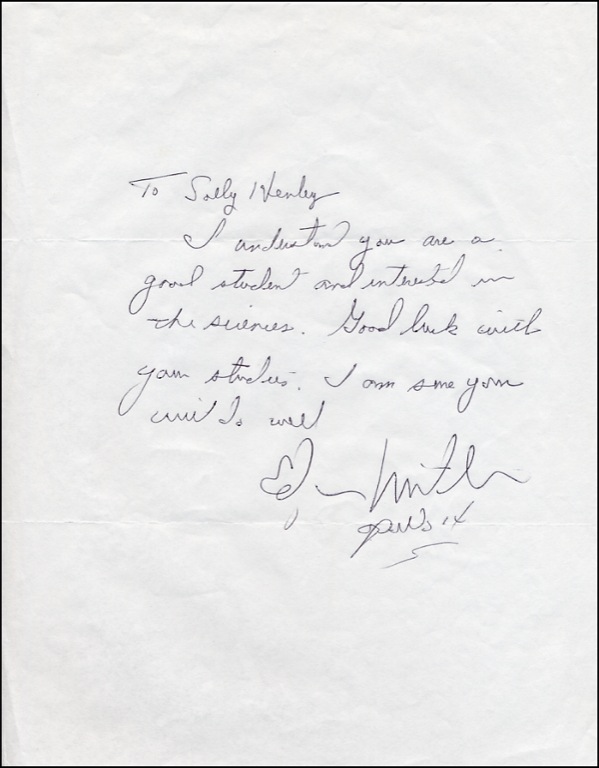 To Sally Henley
I understand you are a
good student and interested in
the sciences. Good luck with
your studies. I am sure you
will do well
Apollo 14